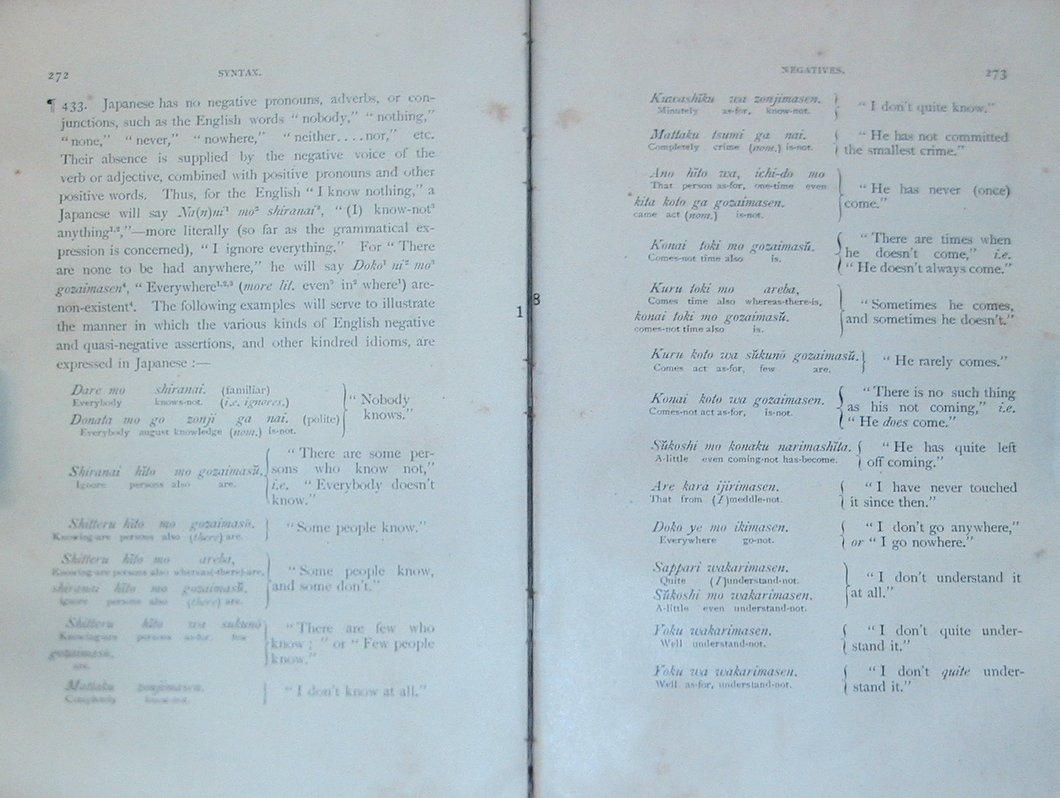 272
SYNTAX.
¶ 433. Japanese has no negative pronouns, adverbs, or con-
junctions, such as the English words “ nobody,” “ nothing,”
“ none,” “ never,” “ nowhere,” “ neither....nor,” etc.
Their absence is supplied by the negative voice of the
verb or adjective, combined with positive pronouns and other
positive words. Thus, for the English “ I know nothing,” a
Japanese will say Na(n)ni¹ mo² shiranai³, “ (I) know-not³
anything¹·²,”—more literally (so far as the grammatical ex-
pression is concerned), “ I ignore everything.” For “ There
are none to be had anywhere,” he will say Doko¹ ni² mo³
gozaimasen⁴, “ Everywhere¹·²·³ (more lit. even³ in² where¹) are-
non-existent⁴. The following examples will serve to illustrate
the manner in which the various kinds of English negative
and quasi-negative assertions, and other kindred idioms, are
expressed in Japanese :—
Dare mo shiranai. (familiar)
Everybody knows-not. (i.e. ignores.)
Donata mo go zonji ga nai. (polite)
Everybody august knowledge (nom.) is-not.
“ Nobody
knows.”
Shiranai hĭto mo gozaimasŭ.
Ignore persons also are.
“ There are some per-
sons who know not,”
i.e. “ Everybody doesn’t
know.”
Shitteru hĭto mo gozaimasŭ.
Knowing-are persons also (there) are.
“ Some people know.”
Shitteru hĭto mo areba,
Knowing-are persons also whereas(-there)-are,
shiranai hĭto mo gozaimasŭ.
ignore persons also (there) are.
“ Some people know,
and some don’t.”
Shitteru hĭto wa sukunō
Knowing-are persons as-for, few
gozaimasŭ.
are.
“ There are few who
know ; ” or “ Few people
know.”
Mattaku zonjimasen.
Completely know-not.
“ I don’t know at all.”
1
8
NEGATIVES.
273
Kuwashĭku wa zonjimasen.
Minutely as-for, know-not.
“ I don’t quite know.”
Mattaku tsumi ga nai.
Completely crime (nom.) is-not.
“ He has not committed
the smallest crime.”
Ano hĭto wa, ichi-do mo
That person as-for, one-time even
kita koto ga gozaimasen.
came act (nom.) is-not.
“ He has never (once)
come.”
Konai toki mo gozaimasŭ.
Comes-not time also is.
“ There are times when
he doesn’t come,” i.e.
“ He doesn’t always come.”
Kuru toki mo areba,
Comes time also whereas-there-is,
konai toki mo gozaimasŭ.
comes-not time also is.
“ Sometimes he comes,
and sometimes he doesn’t.”
Kuru koto wa sŭkunō gozaimasŭ.
Comes act as-for, few are.
“ He rarely comes.”
Konai koto wa gozaimasen.
Comes-not act as-for, is-not.
“ There is no such thing
as his not coming,” i.e.
“ He does come.”
Sŭkoshi mo konaku narimashĭta.
A-little even coming-not has-become.
“ He has quite left
off coming.”
Are kara ijirimasen.
That from (I) meddle-not.
“ I have never touched
it since then.”
Doko ye mo ikimasen.
Everywhere go-not.
“ I don’t go anywhere,”
or “ I go nowhere.”
Sappari wakarimasen.
Quite (I)understand-not.
Sŭkoshi mo wakarimasen.
A-little even understand-not.
“ I don’t understand it
at all.”
Yoku wakarimasen.
Well understand-not.
“ I don’t quite under-
stand it.”
Yoku wa wakarimasen.
Well as-for, understand-not.
“ I don’t quite under-
stand it.”